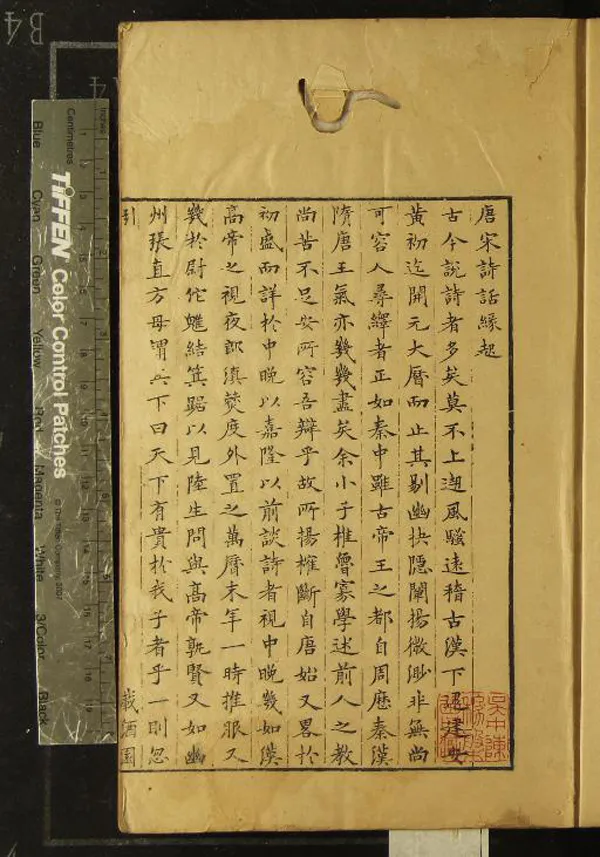 唐宋詩話緣起
古今說詩者多矣莫不上遡風騷遠稽古漢下迨建安
黃初迄開元大曆而止其剔幽抉隱闡揚微渺非無尚
可容人尋繹者正如秦中雖古帝王之都自周歷秦漢
隋唐王氣亦幾幾盡矣余小子椎魯寡學述前人之教
尚苦不足安所容吾辯乎故所揚搉斷自唐始又畧於
初盛而詳於中晚以嘉隆以前談詩者視中晚幾如漢
高帝之視夜郎滇僰度外置之萬曆末年一時推服又
幾於尉佗魋結箕踞以見陸生問與高帝孰賢又如幽
州張直方母謂其下曰天下有貴於我子者乎一則忽
引
載酒園
Centimetres
Inches
TIFFEN Color Control Patches
© The Tiffen Company, 2007
Blue
Cyan
Green
Yellow
Red
Magenta
White
3/Color
Black
B4